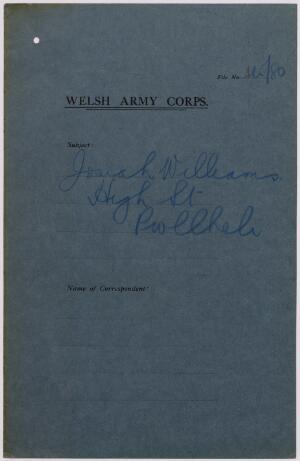 File No.
WELSH ARMY CORPS.
Subject:
Josiah Williams.
High St
Pwllheli
Name of Correspondent: